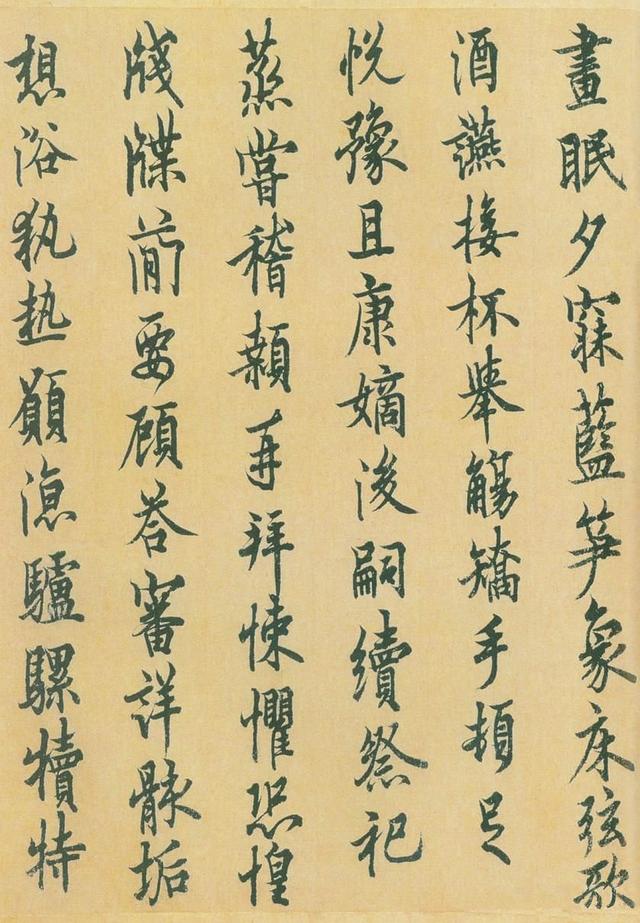 畫眠夕寐藍笋象床弦歌
酒讌接杯舉觴矯手頓足
悅豫且康嫡後嗣續祭祀
蒸嘗稽顙再拜悚懼恐惶
牋牒簡要顧答審詳骸垢
想浴執熱願涼驢騾犢特